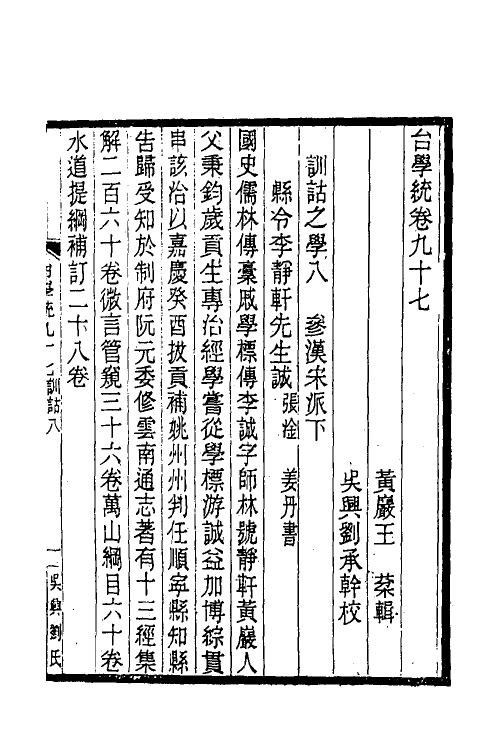 台學統卷九十七
黃巖王　棻輯
吳興劉承幹校
訓詁之學八　參漢宋派下
縣令李靜軒先生誠　張淦　姜丹書
國史儒林傳稾戚學標傳李誠字師林號靜軒黃巖人
父秉鈞歲貢生專治經學嘗從學標游誠益加博綜貫
串該洽以嘉慶癸酉拔貢補姚州州判任順寧縣知縣
告歸受知於制府阮元委修雲南通志著有十三經集
解二百六十卷微言管窺三十六卷萬山綱目六十卷
水道提綱補訂二十八卷
台學統九十七訓詁八
一
吳興劉氏